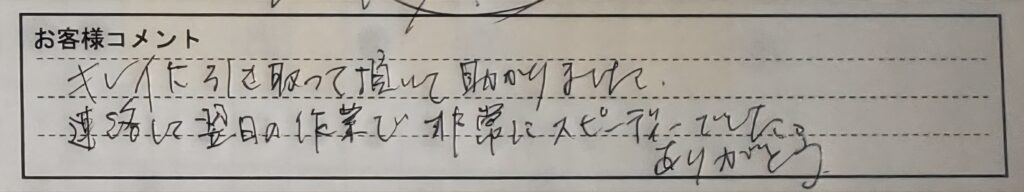 お客様コメント
キレイに引き取って頂いて助かりました.
連絡して翌日の作業で非常にスピーディーでした。
ありがとう.